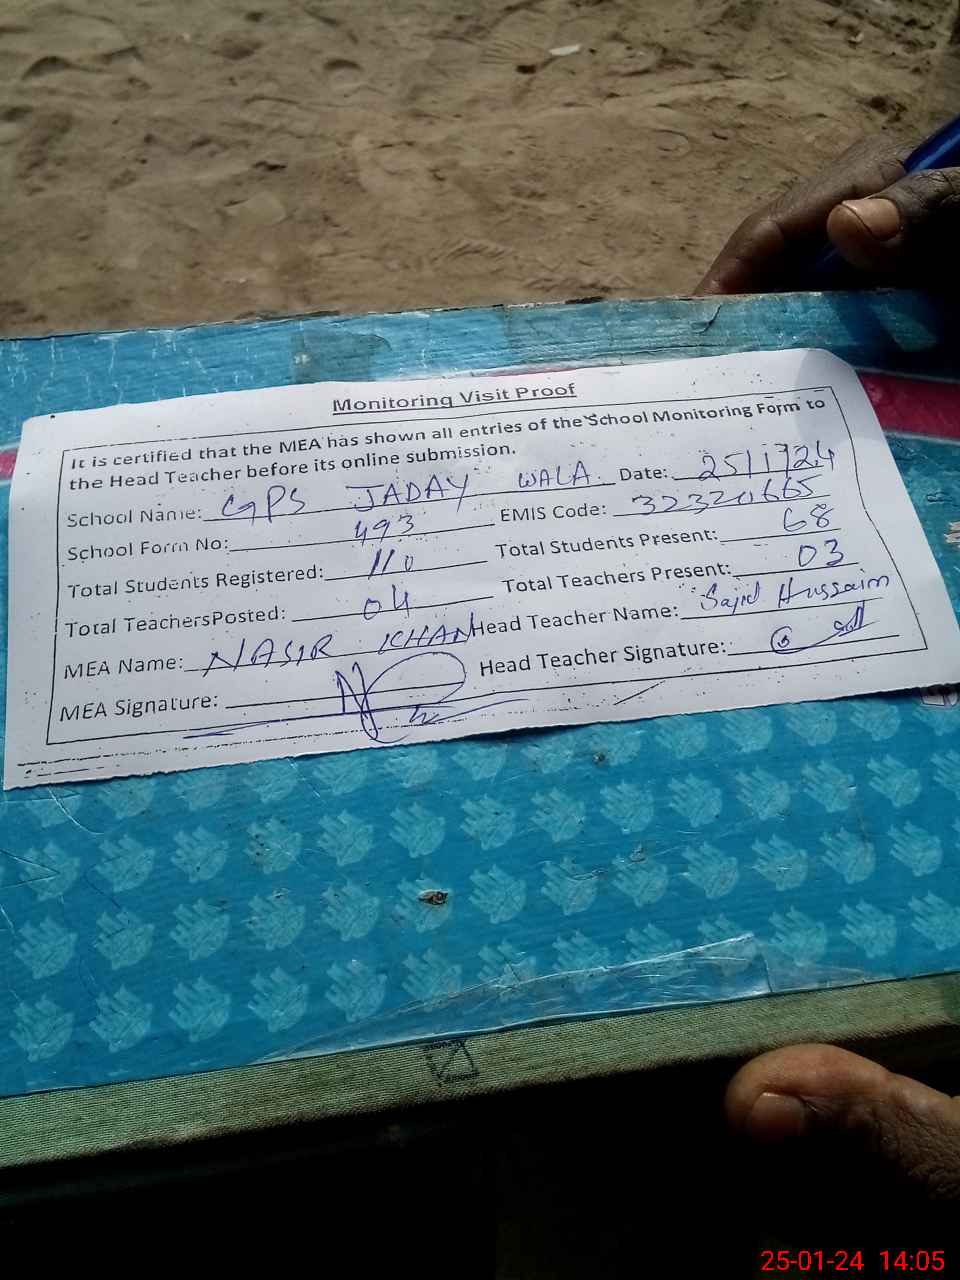 Monitoring Visit Proof
It is certified that the MEA has shown all entries of the School Monitoring Form to
the Head Teacher before its online submission.
School Name: GPS JADAY WALA Date: 25/1/24
School Form No: 493 EMIS Code: 32320665
Total Students Registered: 110 Total Students Present: 68
Total TeachersPosted: 04 Total Teachers Present: 03
MEA Name: NASIR KHAN Head Teacher Name: Sajid Hussain
MEA Signature: Head Teacher Signature:
25-01-24 14:05